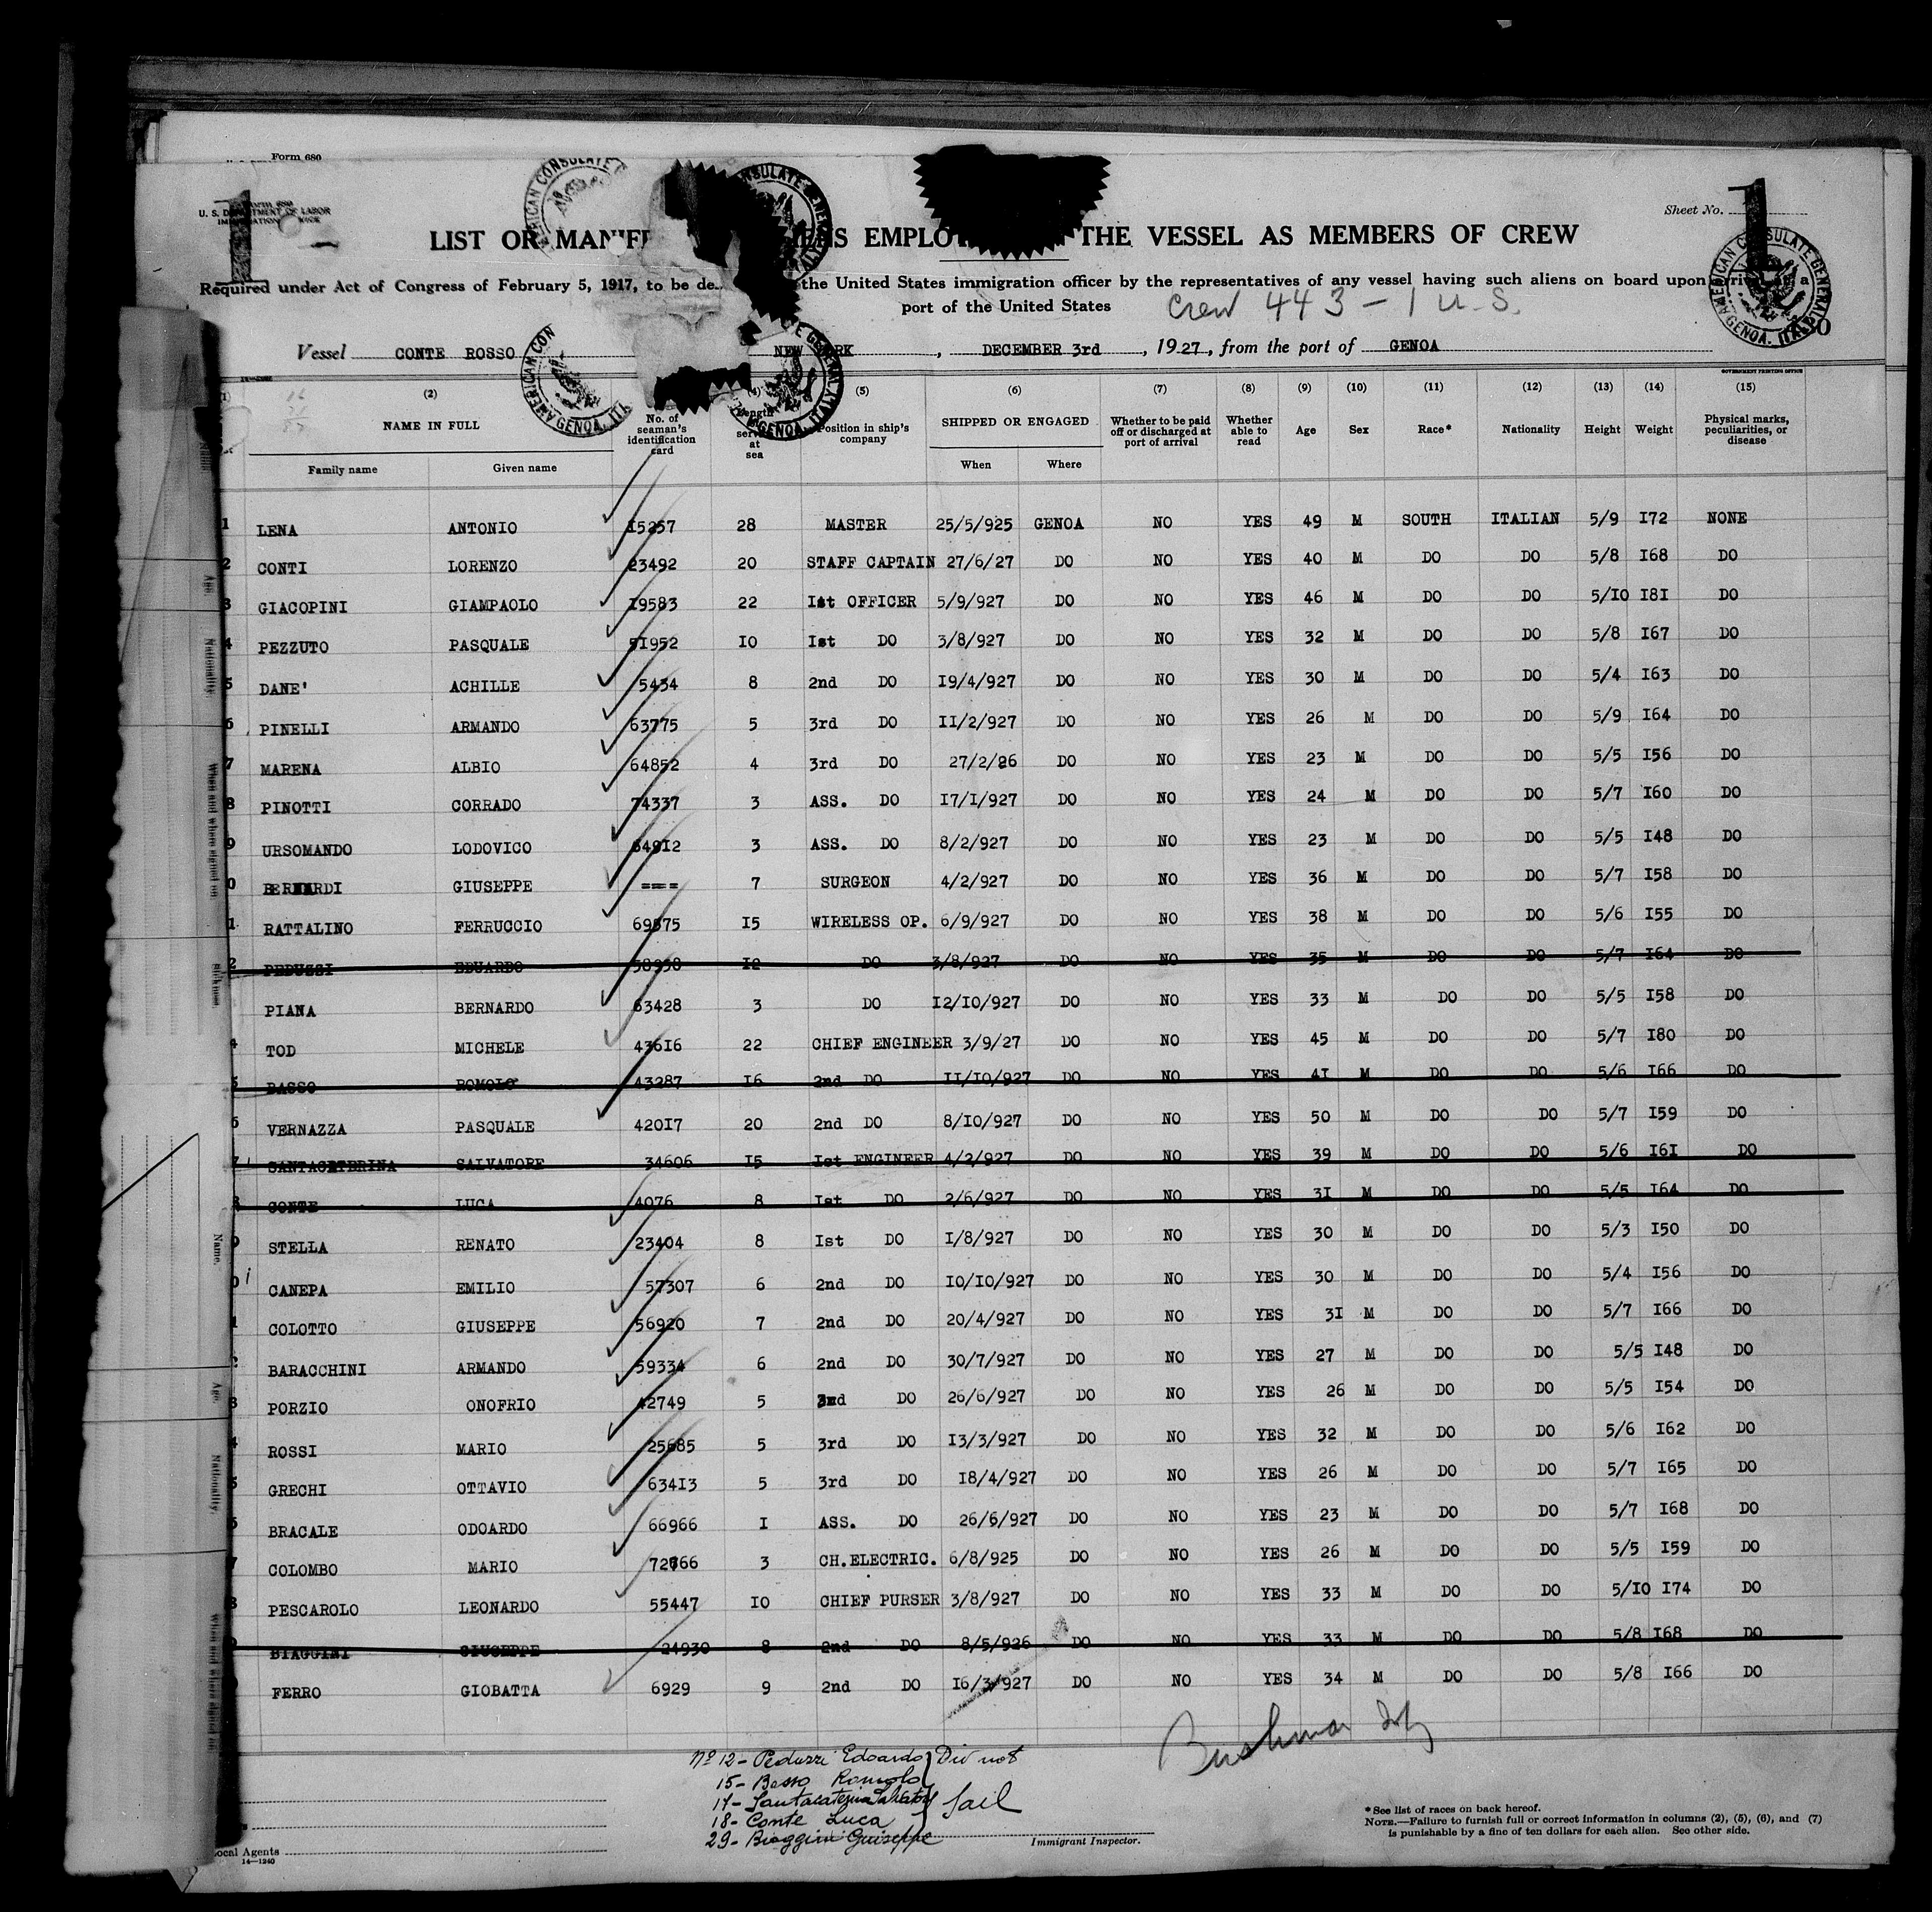 Form 680
U. S. DEPARTMENT OF LABOR
1
1
Sheet No.
AMERICAN CONSULATE GENERAL GENOA, ITALY
LIST OR MANIFE EMPLO THE VESSEL AS MEMBERS OF CREW
Required under Act of Congress of February 5, 1917, to be de the United States immigration officer by the representatives of any vessel having such aliens on board upon a
port of the United States Crew 443 - 1 U.S.
Vessel CONTE ROSSO NEW YORK, DECEMBER 3rd, 1927, from the port of GENOA
GOVERNMENT PRINTING OFFICE
(2) (4) (5) (6) (7) (8) (9) (10) (11) (12) (13) (14) (15)
NAME IN FULL No. of seaman's identification card Length service at sea Position in ship's company SHIPPED OR ENGAGED Whether to be paid off or discharged at port of arrival Whether able to read Age Sex Race* Nationality Height Weight Physical marks, peculiarities, or disease
Family name Given name When Where
1 LENA ANTONIO 15257 28 MASTER 25/5/925 GENOA NO YES 49 M SOUTH ITALIAN 5/9 I72 NONE
2 CONTI LORENZO 23492 20 STAFF CAPTAIN 27/6/27 DO NO YES 40 M DO DO 5/8 I68 DO
3 GIACOPINI GIAMPAOLO I9583 22 Ist OFFICER 5/9/927 DO NO YES 46 M DO DO 5/I0 I8I DO
4 PEZZUTO PASQUALE 5I952 I0 Ist DO 3/8/927 DO NO YES 32 M DO DO 5/8 I67 DO
5 DANE' ACHILLE 5434 8 2nd DO I9/4/927 DO NO YES 30 M DO DO 5/4 I63 DO
6 PINELLI ARMANDO 63775 5 3rd DO II/2/927 DO NO YES 26 M DO DO 5/9 I64 DO
7 MARENA ALBIO 64852 4 3rd DO 27/2/26 DO NO YES 23 M DO DO 5/5 I56 DO
8 PINOTTI CORRADO 74337 3 ASS. DO I7/I/927 DO NO YES 24 M DO DO 5/7 I60 DO
9 URSOMANDO LODOVICO 64912 3 ASS. DO 8/2/927 DO NO YES 23 M DO DO 5/5 I48 DO
0 BERNARDI GIUSEPPE ==== 7 SURGEON 4/2/927 DO NO YES 36 M DO DO 5/7 I58 DO
1 RATTALINO FERRUCCIO 69875 I5 WIRELESS OP. 6/9/927 DO NO YES 38 M DO DO 5/6 I55 DO
2 PEDUZZI EDUARDO 58958 I2 DO 3/8/927 DO NO YES 35 M DO DO 5/7 I64 DO
PIANA BERNARDO 63428 3 DO I2/I0/927 DO NO YES 33 M DO DO 5/5 I58 DO
4 TOD MICHELE 436I6 22 CHIEF ENGINEER 3/9/27 DO NO YES 45 M DO DO 5/7 I80 DO
5 BASSO ROMOLO 43287 I6 2nd DO II/I0/927 DO NO YES 4I M DO DO 5/6 I66 DO
6 VERNAZZA PASQUALE 420I7 20 2nd DO 8/I0/927 DO NO YES 50 M DO DO 5/7 I59 DO
7 SANTACATERINA SALVATORE 34606 I5 Ist ENGINEER 4/2/927 DO NO YES 39 M DO DO 5/6 I6I DO
8 CONTE LUCA 4076 8 Ist DO 2/6/927 DO NO YES 3I M DO DO 5/5 I64 DO
9 STELLA RENATO 23404 8 Ist DO I/8/927 DO NO YES 30 M DO DO 5/3 I50 DO
0 CANEPA EMILIO 57307 6 2nd DO I0/I0/927 DO NO YES 30 M DO DO 5/4 I56 DO
1 COLOTTO GIUSEPPE 56920 7 2nd DO 20/4/927 DO NO YES 3I M DO DO 5/7 I66 DO
2 BARACCHINI ARMANDO 59334 6 2nd DO 30/7/927 DO NO YES 27 M DO DO 5/5 I48 DO
3 PORZIO ONOFRIO 42749 5 DO 26/6/927 DO NO YES 26 M DO DO 5/5 I54 DO
4 ROSSI MARIO 25685 5 3rd DO I3/3/927 DO NO YES 32 M DO DO 5/6 I62 DO
5 GRECHI OTTAVIO 634I3 5 3rd DO I8/4/927 DO NO YES 26 M DO DO 5/7 I65 DO
6 BRACALE ODOARDO 66966 I ASS. DO 26/6/927 DO NO YES 23 M DO DO 5/7 I68 DO
7 COLOMBO MARIO 3 CH.ELECTRIC. 6/8/925 DO NO YES 26 M DO DO 5/5 I59 DO
8 PESCAROLO LEONARDO 55447 I0 CHIEF PURSER 3/8/927 DO NO YES 33 M DO DO 5/I0 I74 DO
BIAGGINI GIUSEPPE 24930 8 2nd DO 8/5/926 DO NO YES 33 M DO DO 5/8 I68 DO
FERRO GIOBATTA 6929 9 2nd DO I6/3/927 DO NO YES 34 M DO DO 5/8 I66 DO
No 12 - Peduzzi Edoardo } Did not
15 - Basso Romolo
17 - Santacaterina Salvatore } sail
18 - Conte Luca
29 - Biaggini Guiseppe
Immigrant Inspector.
*See list of races on back hereof.
NOTE.—Failure to furnish full or correct information in columns (2), (5), (6), and (7)
is punishable by a fine of ten dollars for each alien. See other side.
Local Agents
14—1240